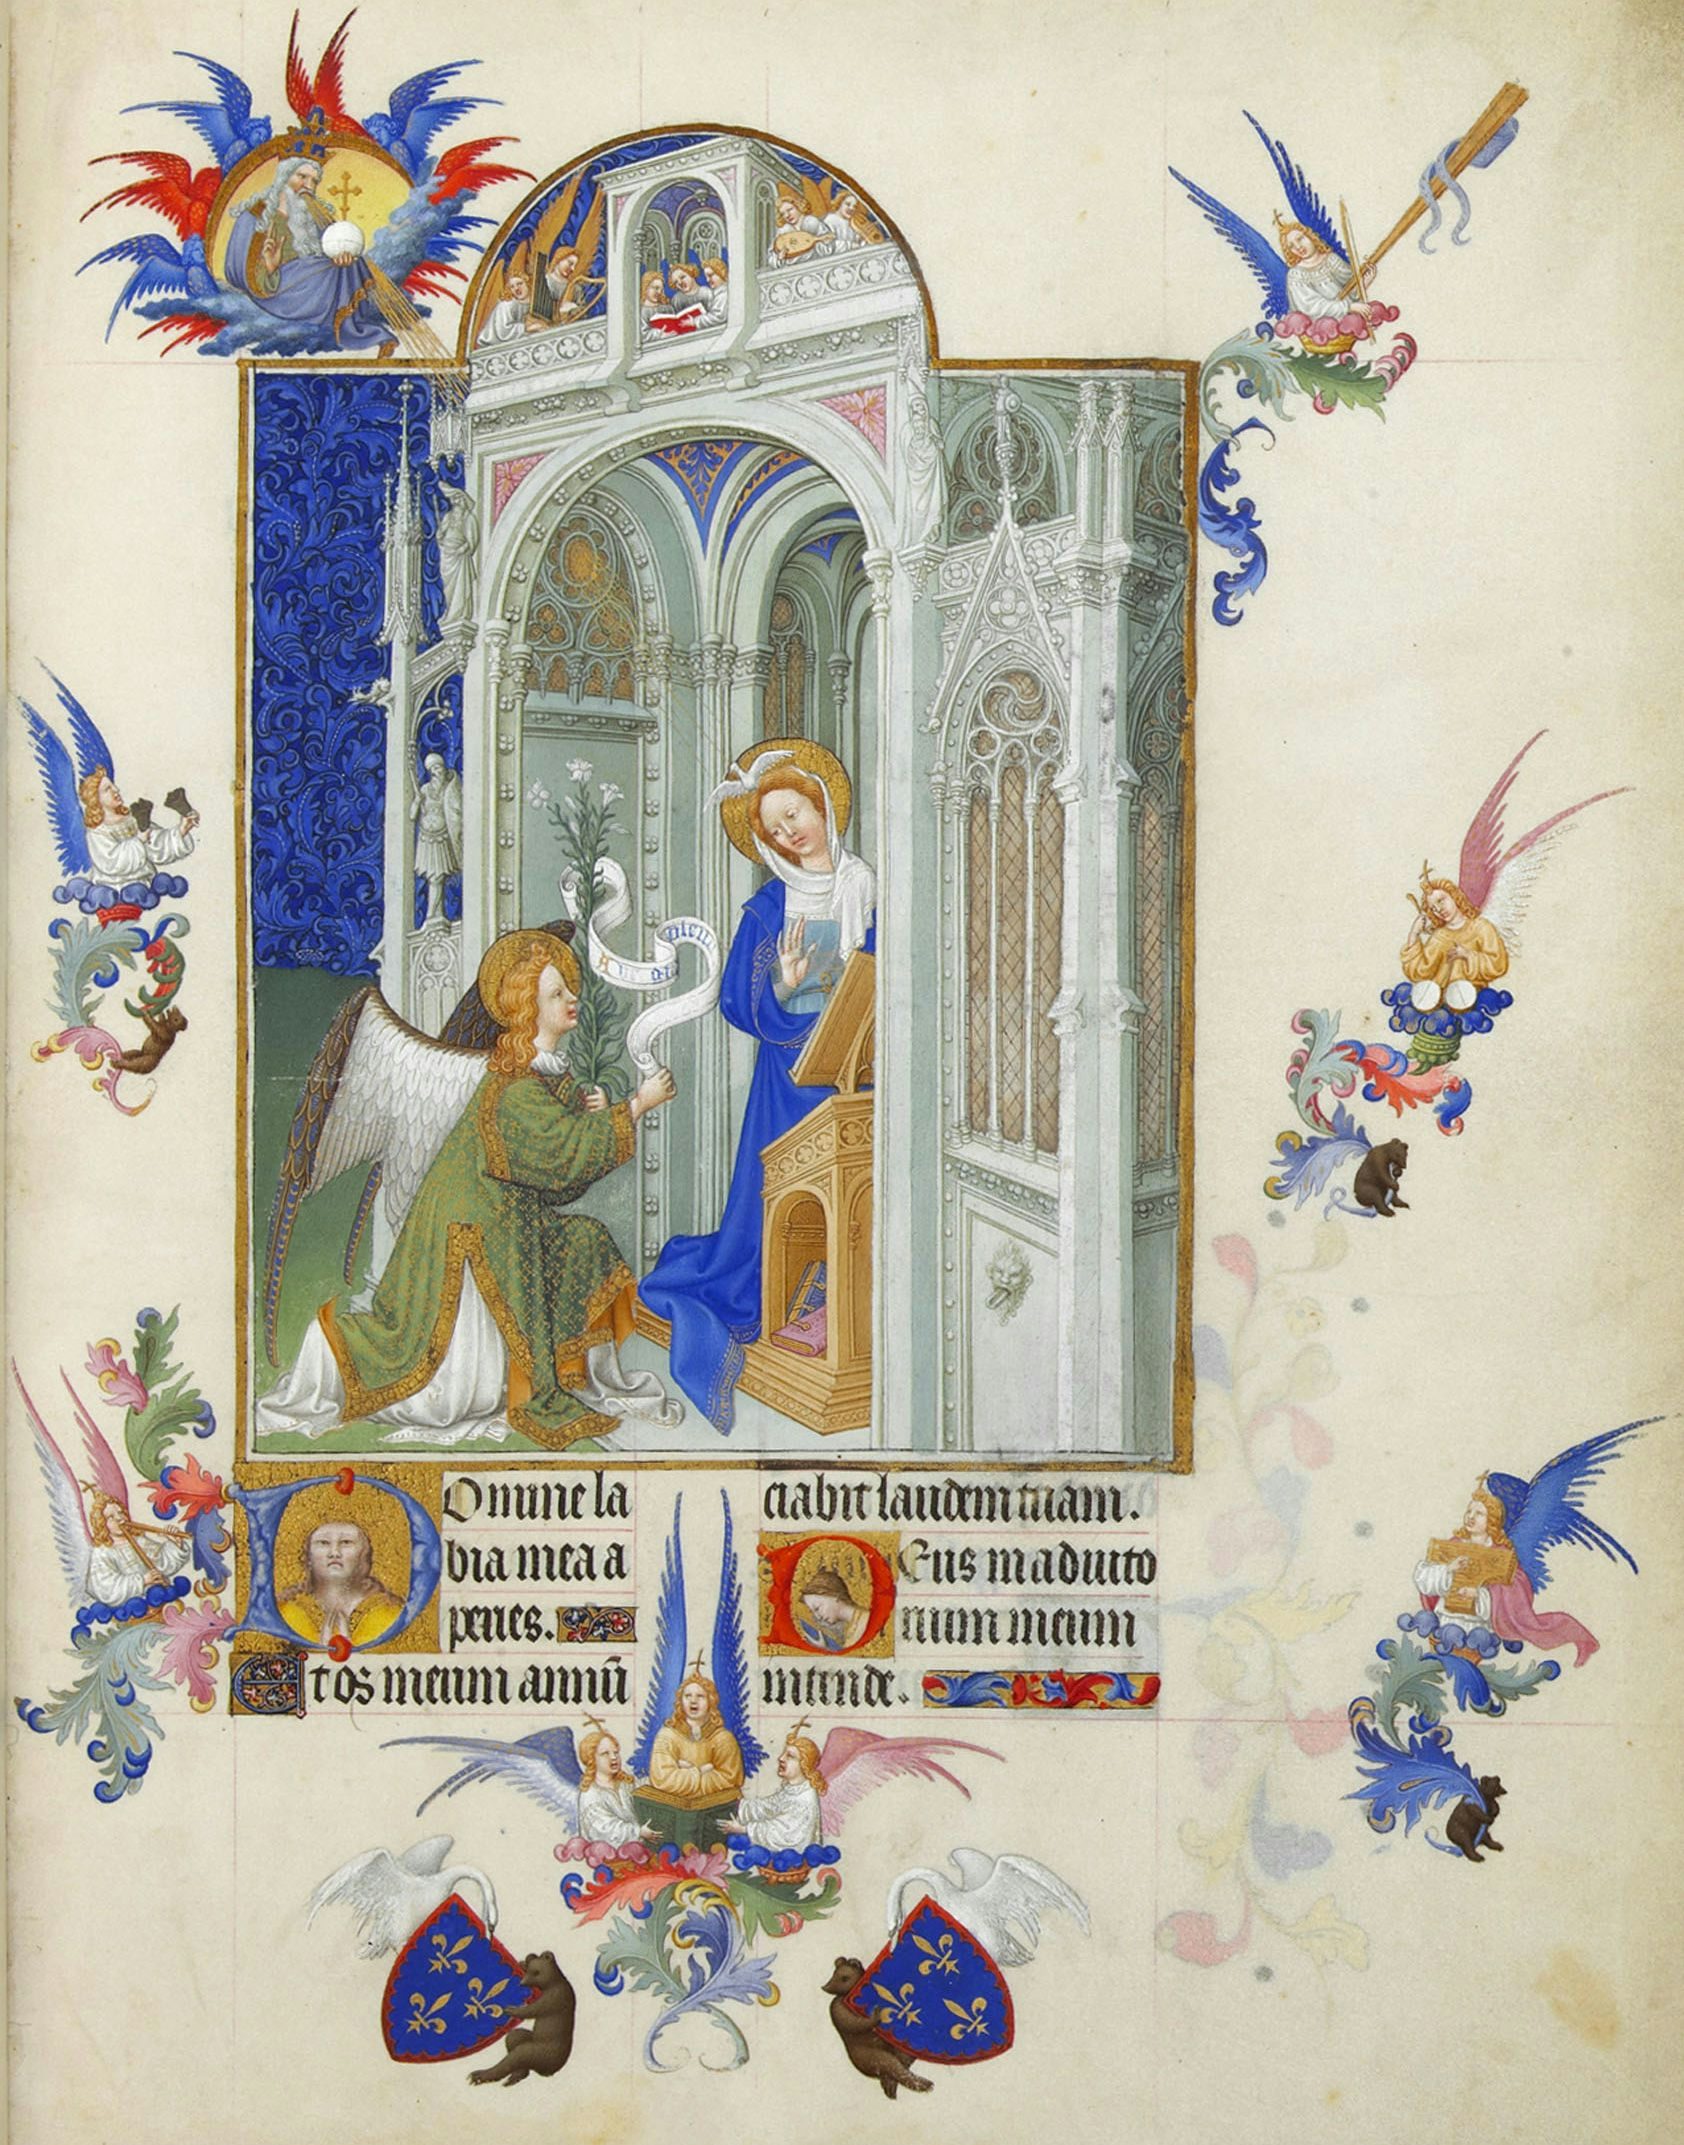 Ave gra plena
Domine la
bia mea a
peries.
Et os meum annū
ciabit laudem tuam.
Deus in adiuto
rium meum
intende.